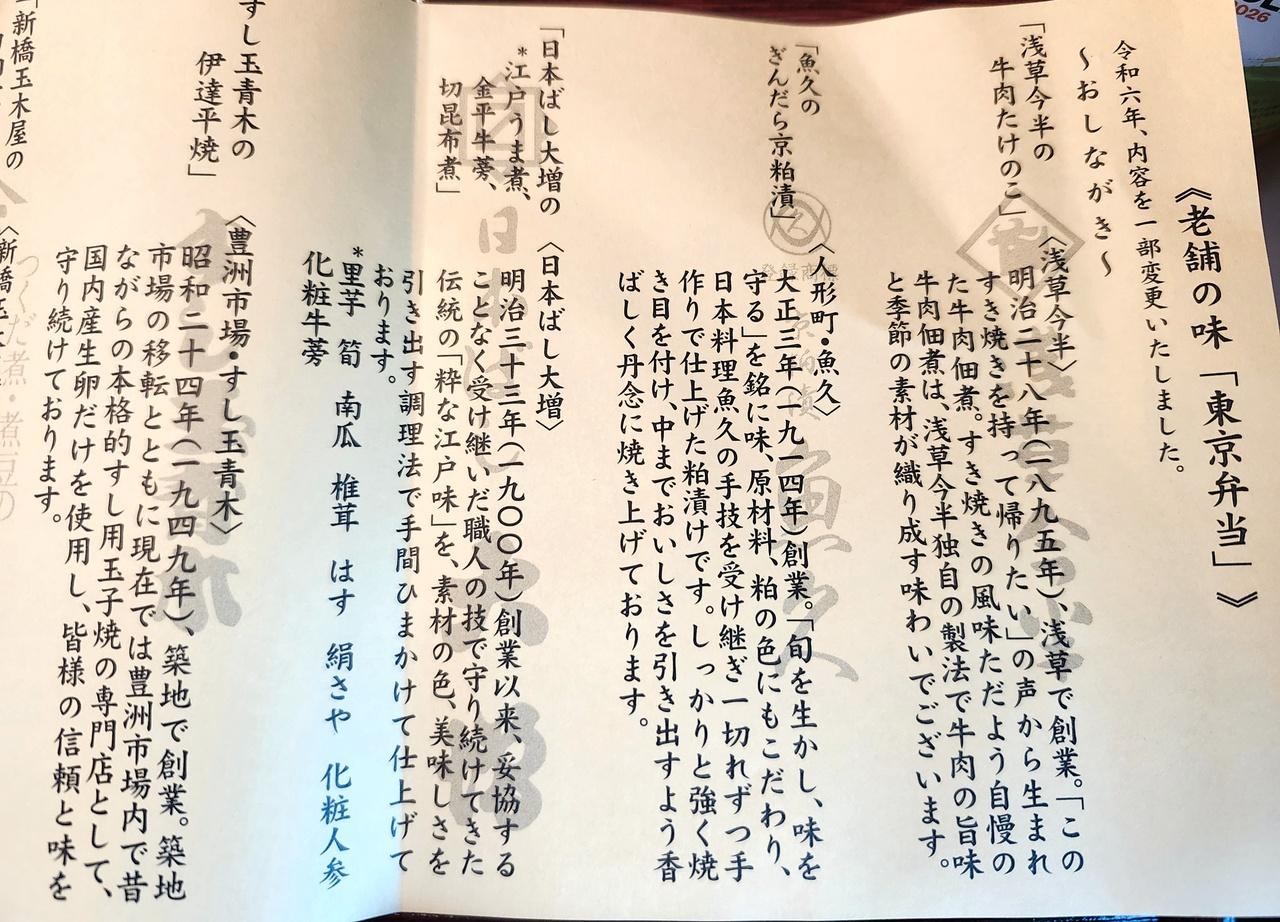 《老舗の味「東京弁当」》
令和六年、内容を一部変更いたしました。
～おしながき～
「浅草今半の
牛肉たけのこ」
〈浅草今半〉
明治二十八年(一八九五年)、浅草で創業。「この
すき焼きを持って帰りたい」の声から生まれ
た牛肉佃煮。すき焼きの風味ただよう自慢の
牛肉佃煮は、浅草今半独自の製法で牛肉の旨味
と季節の素材が織り成す味わいでございます。
「魚久の
ぎんだら京粕漬」
〈人形町・魚久〉
大正三年(一九一四年)創業。「旬を生かし、味を
守る」を銘に味、原材料、粕の色にもこだわり、
日本料理魚久の手技を受け継ぎ一切れずつ手
作りで仕上げた粕漬けです。しっかりと強く焼
き目を付け、中までおいしさを引き出すよう香
ばしく丹念に焼き上げております。
「日本ばし大増の
*江戸うま煮、
金平牛蒡、
切昆布煮」
〈日本ばし大増〉
明治三十三年(一九〇〇年)創業以来、妥協する
ことなく受け継いだ職人の技で守り続けてきた
伝統の「粋な江戸味」を、素材の色、美味しさを
引き出す調理法で手間ひまかけて仕上げて
おります。
*里芋 筍 南瓜 椎茸 はす 絹さや 化粧人参
化粧牛蒡
すし玉青木の
伊達平焼」
〈豊洲市場・すし玉青木〉
昭和二十四年(一九四九年)、築地で創業。築地
市場の移転とともに現在では豊洲市場内で昔
ながらの本格的すし用玉子焼の専門店として、
国内産生卵だけを使用し、皆様の信頼と味を
守り続けております。
「新橋玉木屋の
〈新橋玉
登録商標
京粕漬
魚久
浅草今半
日本ばし大増
つくだ煮・煮豆の
2026